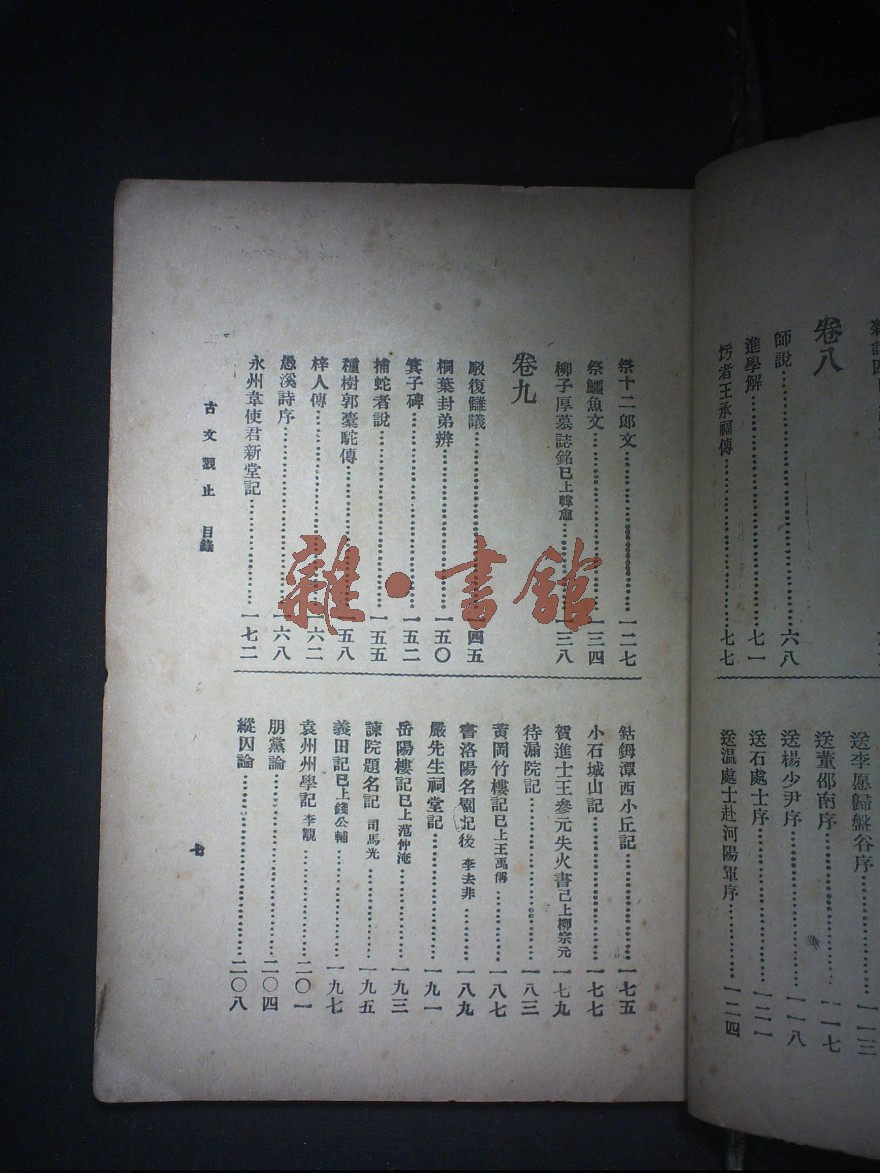 卷八
師說⋯⋯六八
進學解⋯⋯七一
圬者王承福傳⋯⋯七七
送李愿歸盤谷序⋯⋯一一三
送董邵南序⋯⋯一一七
送楊少尹序⋯⋯一一八
送石處士序⋯⋯一二一
送温處士赴河陽軍序⋯⋯一二四
祭十二郎文⋯⋯一二七
祭鱷魚文⋯⋯一三四
柳子厚墓誌銘已上韓愈⋯⋯一三八
卷九
駁復讎議⋯⋯一四五
桐葉封弟辨⋯⋯一五〇
箕子碑⋯⋯一五二
捕蛇者說⋯⋯一五五
種樹郭橐駝傳⋯⋯一五八
梓人傳⋯⋯一六二
愚溪詩序⋯⋯一六八
永州韋使君新堂記⋯⋯一七二
鈷鉧潭西小丘記⋯⋯一七五
小石城山記⋯⋯一七七
賀進士王參元失火書已上柳宗元⋯⋯一七九
待漏院記⋯⋯一八三
黃岡竹樓記已上王禹偁⋯⋯一八七
書洛陽名園記後 李去非⋯⋯一八九
嚴先生祠堂記⋯⋯一九一
岳陽樓記已上范仲淹⋯⋯一九三
諫院題名記 司馬光⋯⋯一九五
義田記已上錢公輔⋯⋯一九七
袁州州學記 李覯⋯⋯二〇一
朋黨論⋯⋯二〇四
縱囚論⋯⋯二〇八
古文觀止 目錄
七
雜·書館